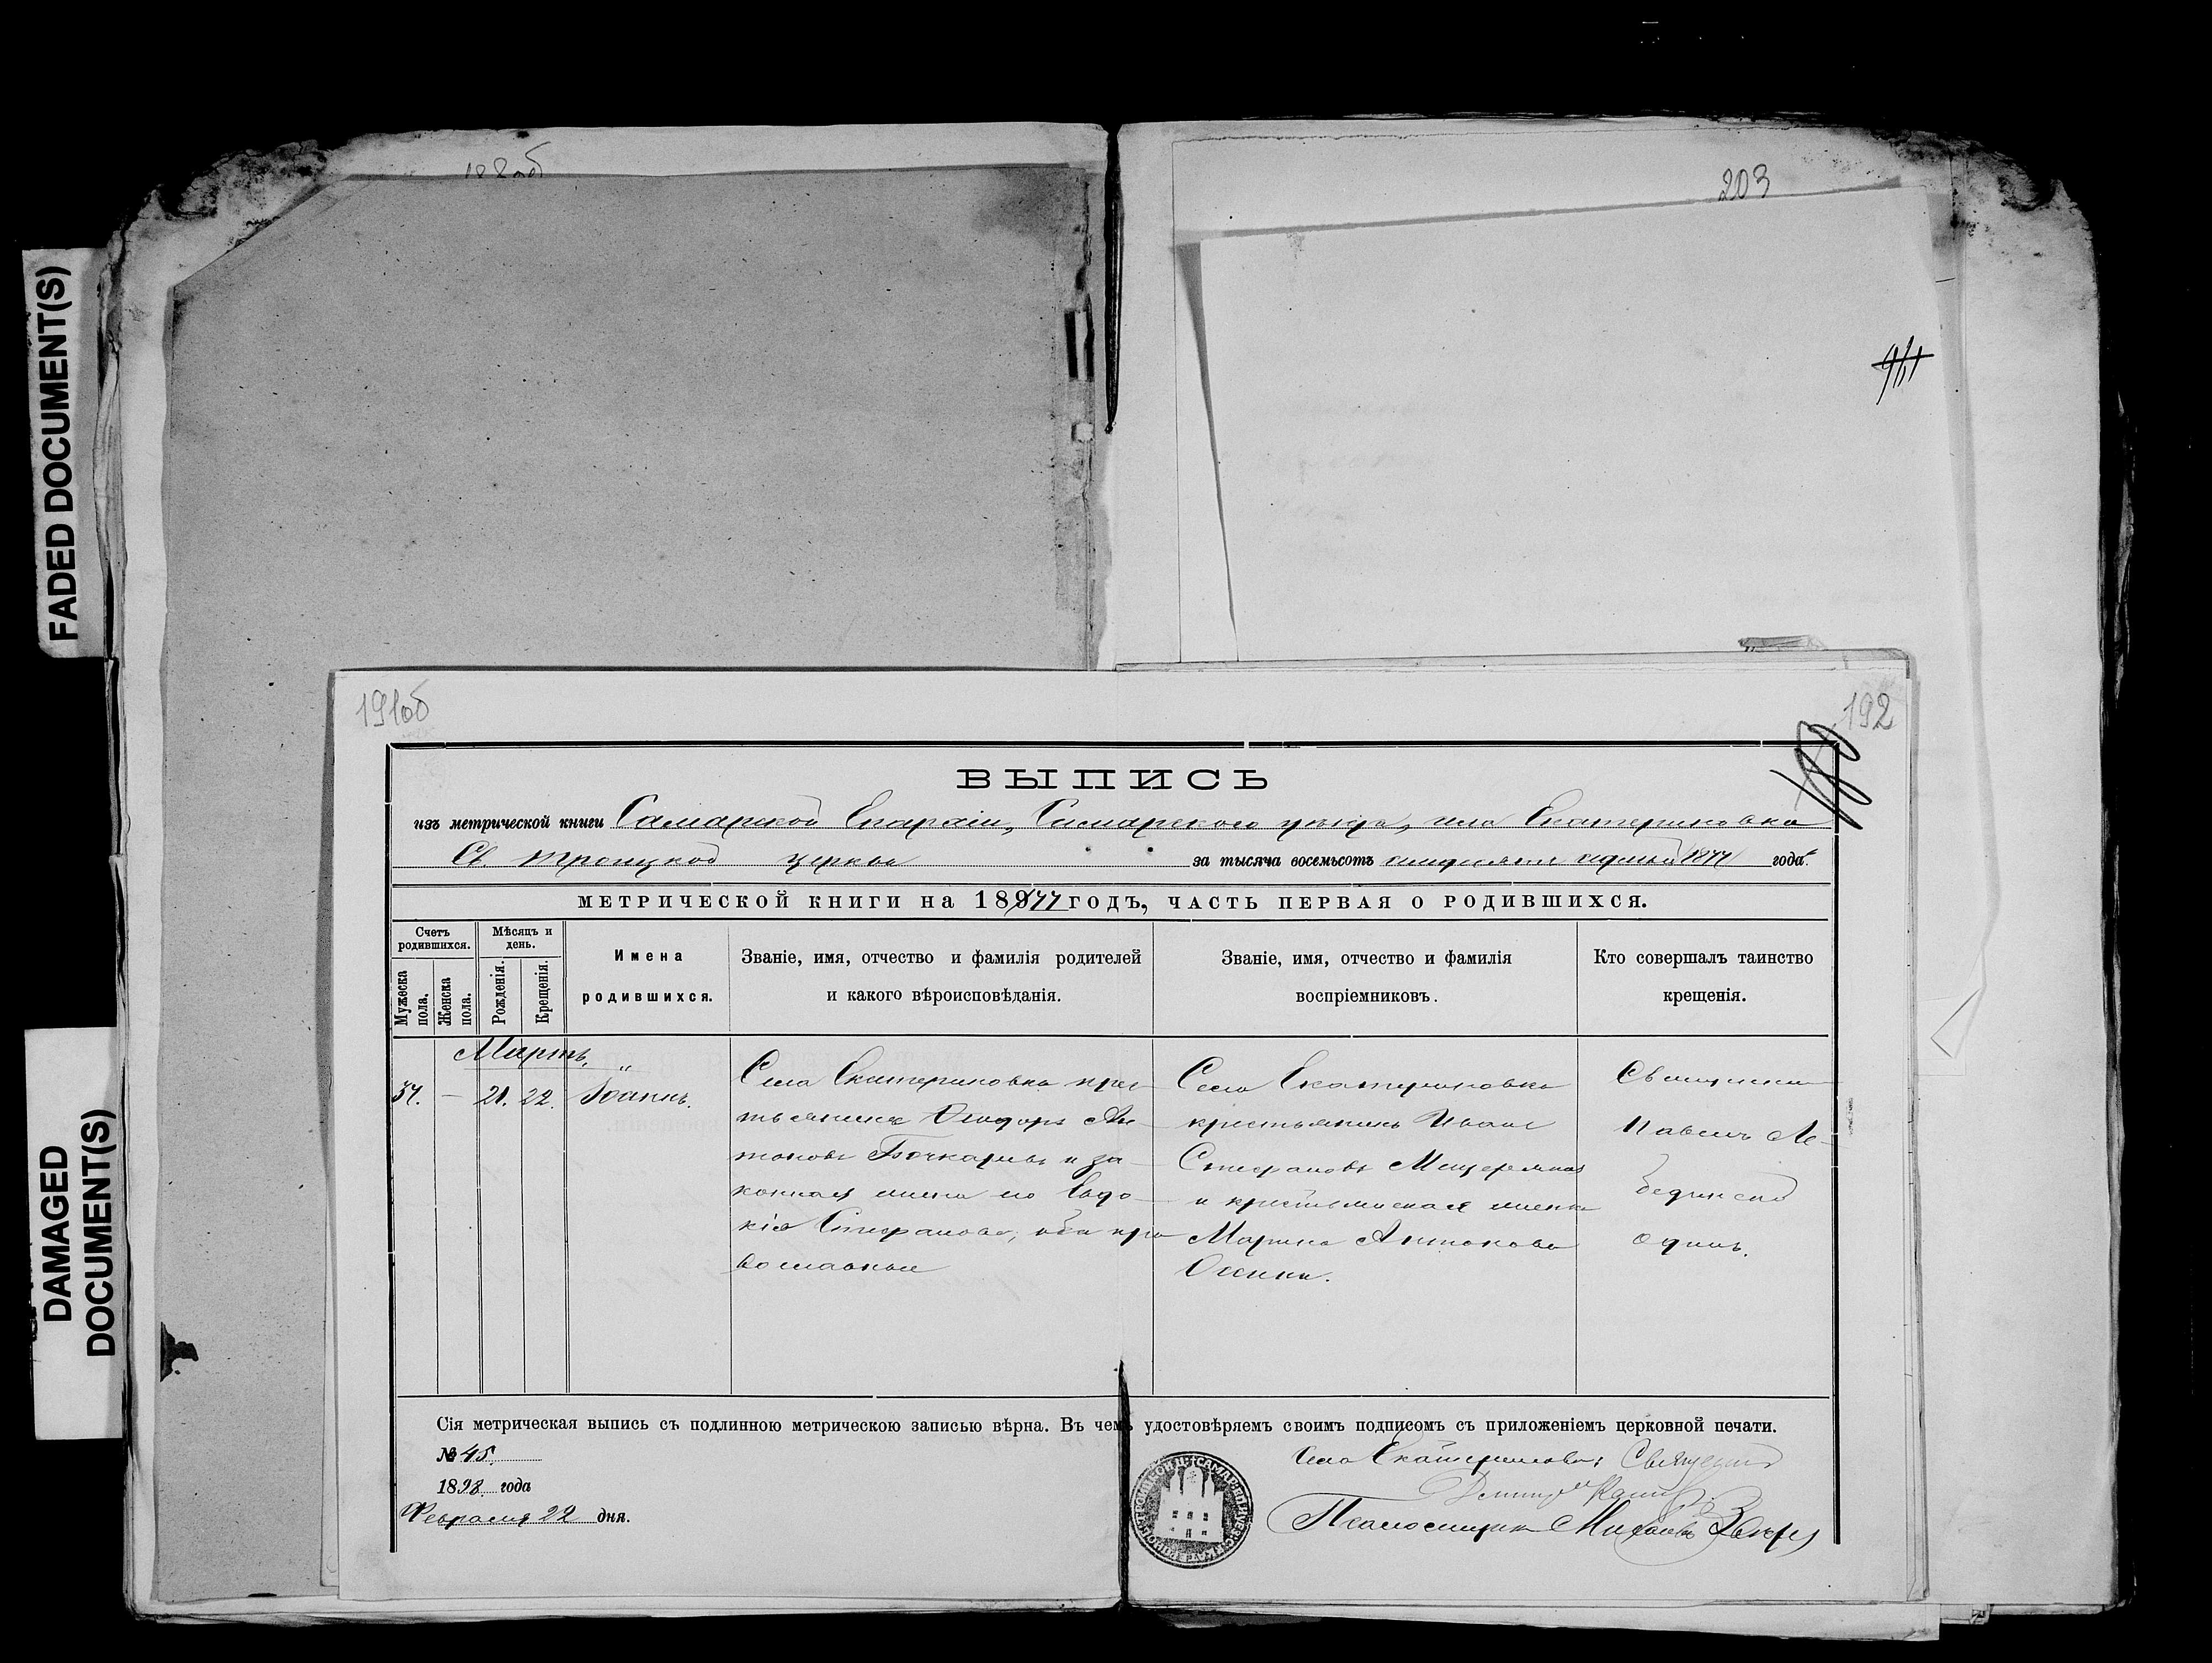 188об
203
FADED DOCUMENT(S)
DAMAGED
DOCUMENT(S)
191об
192
ВЫПИСЬ
изъ метрической книги Самарской Епархіи, Самарского уѣзда, села Екатериновка
Св Троицкой церкви за тысяча восемьсотъ семьдесятъ седьмой 1877 года.
МЕТРИЧЕСКОЙ КНИГИ на 1877 ГОДЪ, ЧАСТЬ ПЕРВАЯ О РОДИВШИХСЯ.
Счетъ родившихся.
Мужеска пола.
Женска пола.
Мѣсяцъ и день.
Рожденія.
Крещенія.
Имена
родившихся.
Званіе, имя, отчество и фамилія родителей
и какого вѣроисповѣданія.
Званіе, имя, отчество и фамилія
воспріемниковъ.
Кто совершалъ таинство
крещенія.
Мартъ.
37. — 21. 22. Іоаннъ.
Села Екатериновка крес-
тьянинъ Ѳеодоръ Ан-
тоновъ Бочкаревъ и за-
конная жена его Евдо-
кія Стефанова, оба пра
вославные
Села Екатериновка
крестьянинъ Иванъ
Стефановъ
и крестьянская жена
Марина Антонова
Священникъ
Павелъ Ле-
бединскій
одинъ.
Сія метрическая выпись съ подлинною метрическою записью вѣрна. Въ чемъ удостовѣряемъ своимъ подписомъ съ приложеніемъ церковной печати.
№ 45.
1898 года
Февраля 22 дня.
Села Екатериновки Священникъ
Псаломщикъ Михаилъ